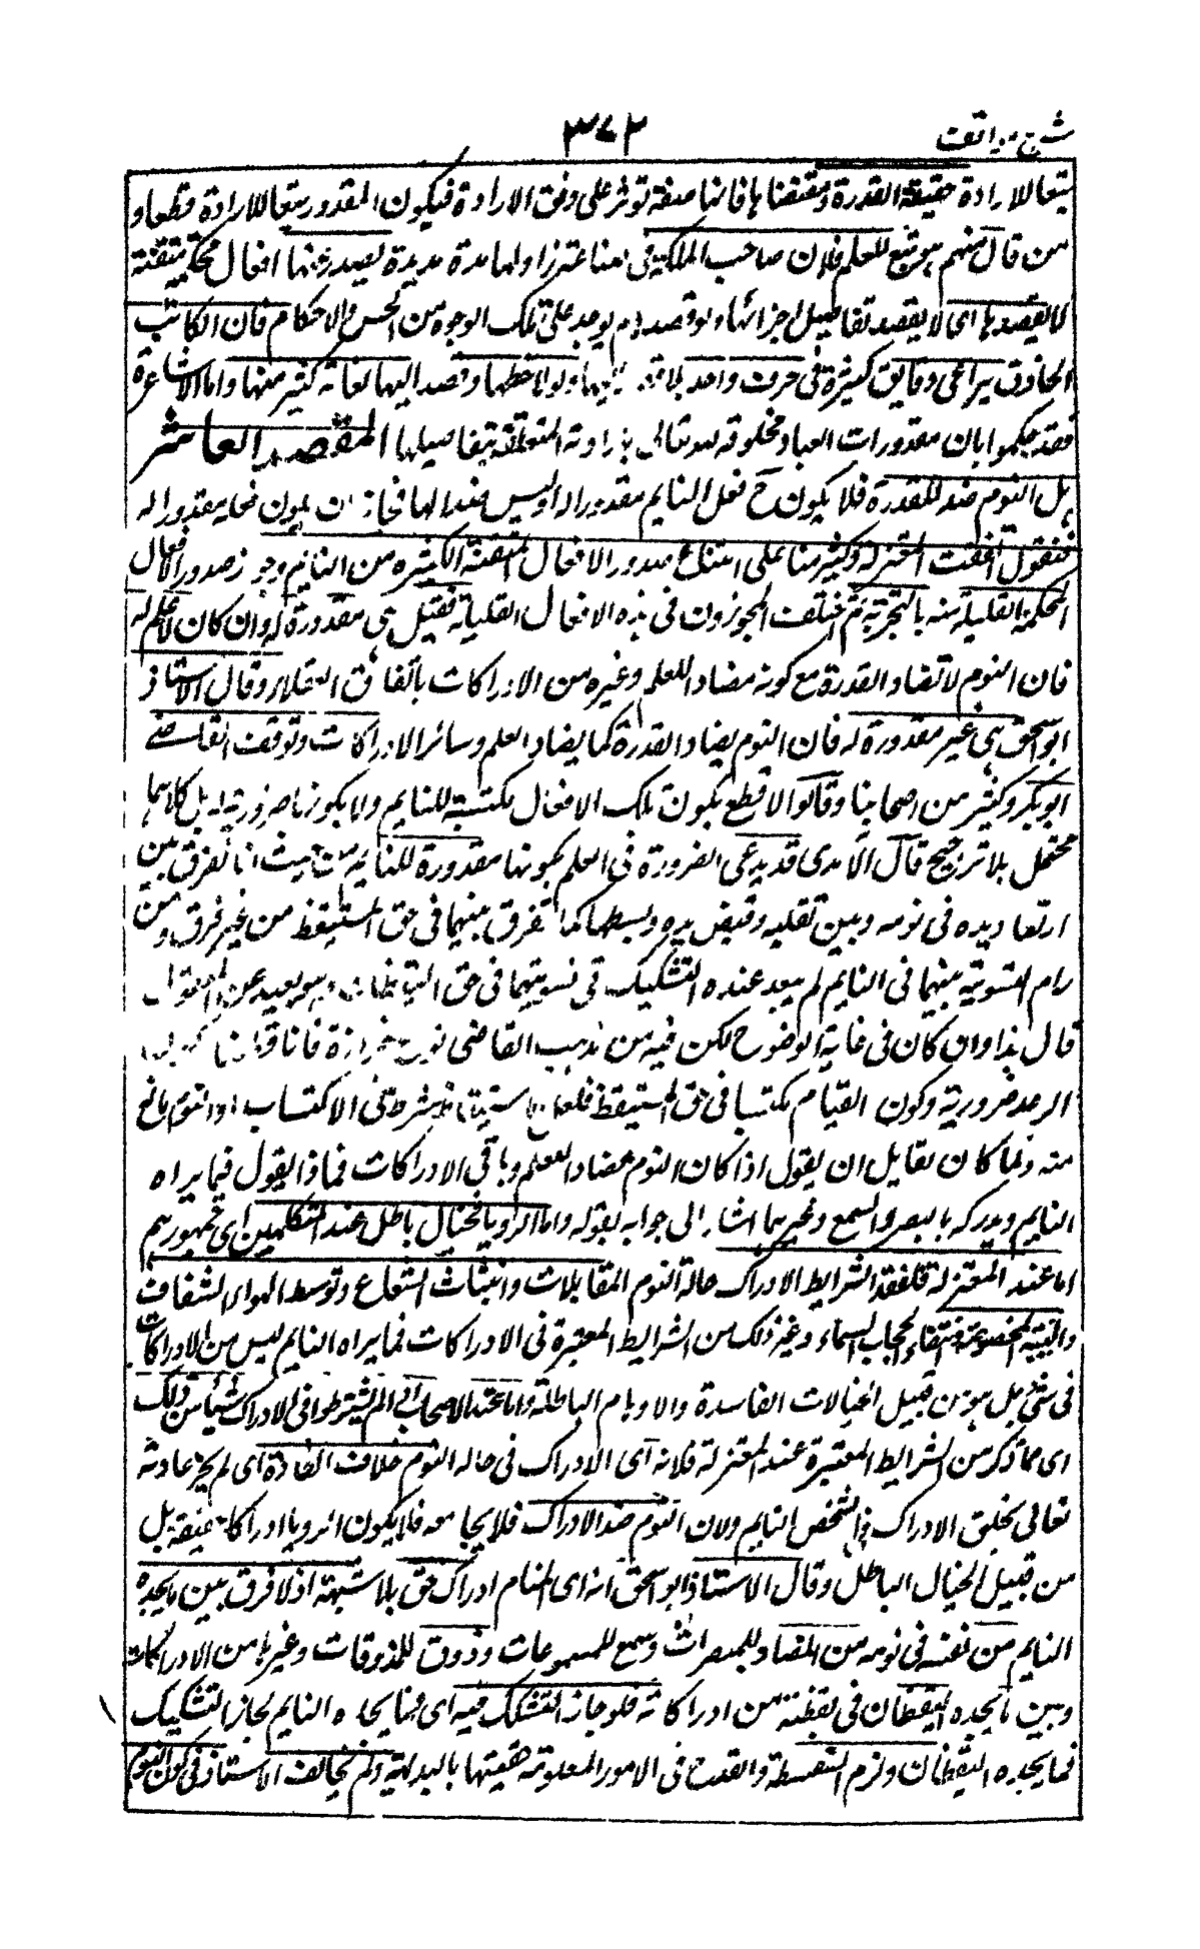 شرح مواقف
٣٧٢
تبعا للارادة حقيقة القدرة ومقتضاها فانها صفة توثر على وفق الارادة فيكون المقدور تبعا للارادة قطعا و
من قال منهم هو تبع للعلم فلان صاحب الملكة فى صناعة زاولها مدة مديدة يصدر عنها افعال محكمة متقنة
لا يقصدها اى لا يقصد تفاصيل اجزائها ولو قصدها لم يوجد على تلك الوجوه من الحسن والاحكام فان الكاتب
الحاذق يراعى دقايق كثيرة فى حرف واحد بلا قصد اليها ولو لاحظها وقصد اليها لفاته كثير منها واما الاشاعرة
فقد حكموا بان مقدورات العباد مخلوقة لله تعالى بارادته المتعلقة بتفاصيلها المقصد العاشر
هل النوم ضد للقدرة فلا يكون ح فعل النايم مقدورا له او ليس ضدا لها فجاز ان يكون فعله مقدورا له
فنقول اتفقت المعتزلة وكثير منا على امتناع صدور الافعال المتقنة الكثيرة من النايم وجواز صدور الافعال
المحكمة القليلة منه بالتجربة ثم اختلف المجوزون فى هذه الافعال القليلة فقيل هى مقدورة له وان كان لا علم له
فان النوم لا تضاد القدرة مع كونه مضادا للعلم وغيره من الادراكات باتفاق العقلاء وقال الاستاذ
ابو اسحق هى غير مقدورة له فان النوم يضاد القدرة كما يضاد العلم وسائر الادراكات وتوقف القاضى
ابو بكر وكثير من اصحابنا وقالوا لا قطع بكون تلك الافعال مكتسبة للنايم ولا بكونها ضرورية له بل كلاهما
محتمل بلا ترجيح قال الآمدى قد يدعى الضرورة فى العلم بكونها مقدورة للنايم من حيث انا نفرق بين
ارتعاد يده فى نومه وبين تقلبه وقبض يده وبسطها كما نفرق بينهما فى حق المستيقظ من غير فرق ومن
رام التسوية بينهما فى النايم لم يبعد عنده التشكيك فى تسويتهما فى حق اليقظان وهو بعيد عن المعقول
قال هذا وان كان فى غاية الوضوح لكن فيه من مذهب القاضى فانا
الرعد ضرورية وكون القيام مكتسبا فى حق المستيقظ فلعل الاستيقاظ شرط فى الاكتساب او النوم مانع
منه ولما كان لقايل ان يقول اذا كان النوم مضادا للعلم وباقى الادراكات فماذا يقول فيما يراه
النايم ويدركه بالبصر والسمع وغيرهما اشار الى جوابه بقوله واما الرويا فخيال باطل عند المتكلمين اى جمهورهم
اما عند المعتزلة فلفقد الشرايط الادراك حالة النوم المقابلات وانبثاث الشعاع وتوسط الهواء الشفاف
والبنية المخصوصة وانتفاء الحجاب وغير ذلك من الشرايط المعتبرة فى الادراكات فما يراه النايم ليس من الادراكات
فى شئ بل هو من قبيل الخيالات الفاسدة والاوهام الباطلة واما عند الاصحاب اذ لم يشترطوا فى الادراك شيئا من ذلك
اى مما ذكر من الشرايط المعتبرة عند المعتزلة فلانه اى الادراك فى حالة النوم خلاف العادة اى لم يجر عادته
تعالى بخلق الادراك فى الشخص النايم ولان النوم ضد الادراك فلا يجامعه فلا يكون الرويا ادراكا حقيقة بل
من قبيل الخيال الباطل وقال الاستاذ ابو اسحق انه اى المنام ادراك حق بلا شبهة اذ لا فرق بين ما يجده
النايم من نفسه فى نومه من ابصار للمبصرات وسمع للمسموعات وذوق للمذوقات وغيرها من الادراكات
وبين ما يجده اليقظان فى يقظته من ادراكاته فلو جاز التشكك فيه اى فيما يجده النايم لجاز التشكيك
فما يجده اليقظان ولزم السفسطة والقدح فى الامور المعلومة حقيتها بالبديهة ولم يخالف الاستاذ فى كون النوم